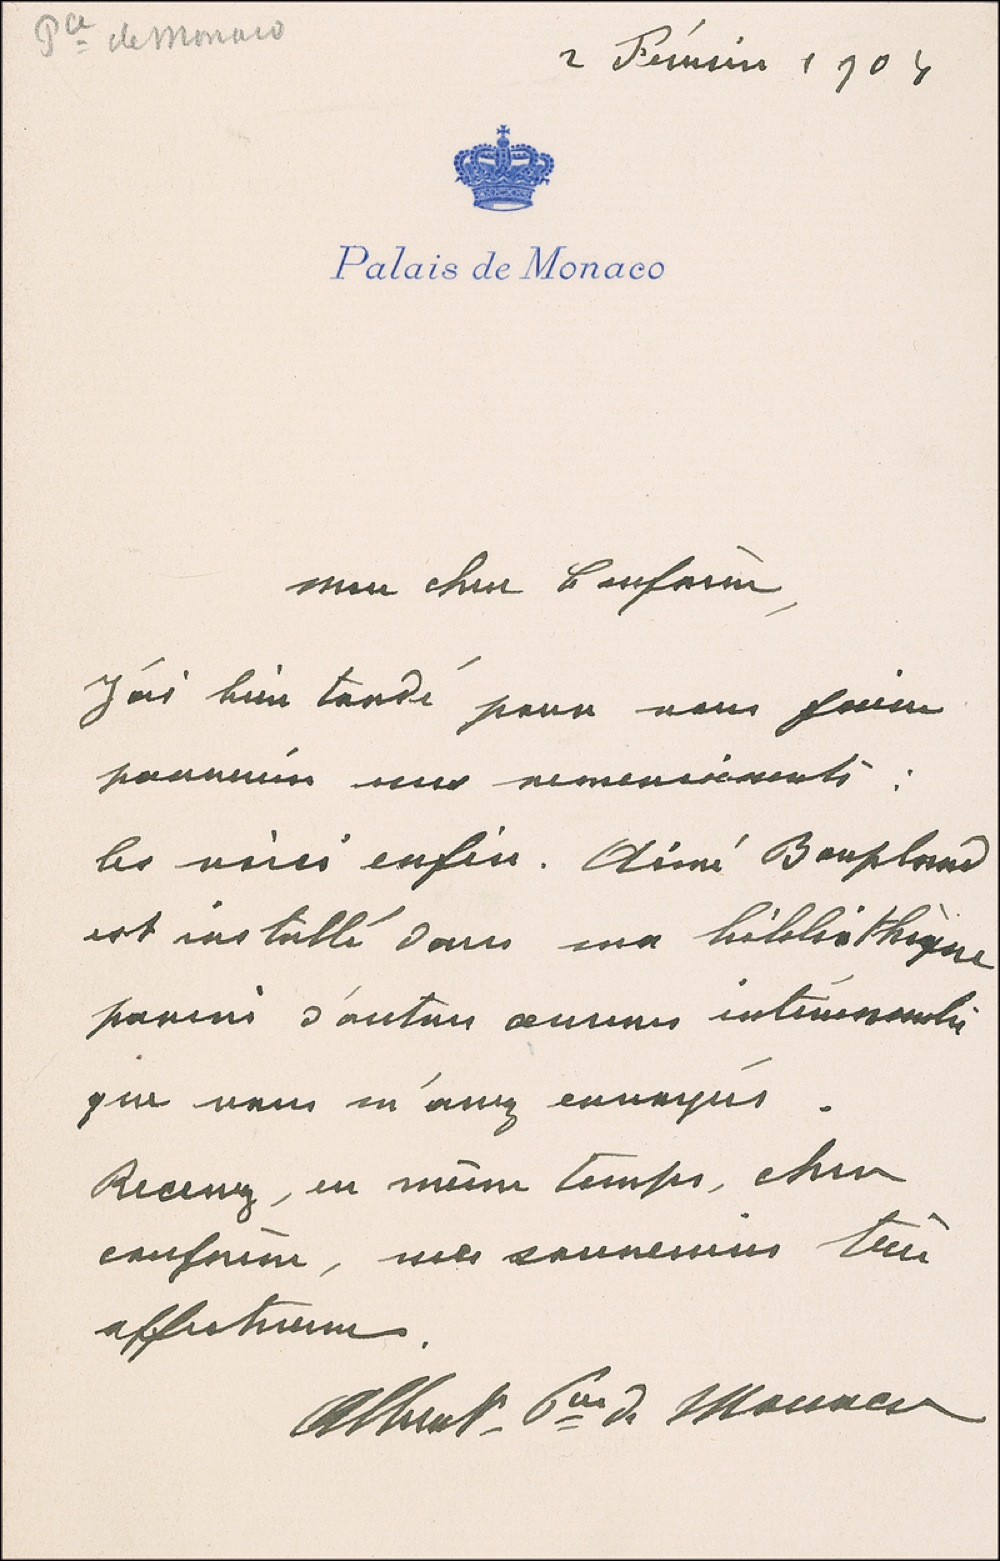 Pce de Monaco
2 Février 1907
Palais de Monaco
Mon cher Confrère,
J'ai bien tardé pour vous faire
parvenir mes remerciements :
les voici enfin. Aimé Bonpland
est installé dans ma bibliothèque
parmi d'autres œuvres intéressantes
que vous m'avez envoyés.
Recevez, en même temps, cher
confrère, mes souvenirs très
affectueux.
Albert Pce de Monaco